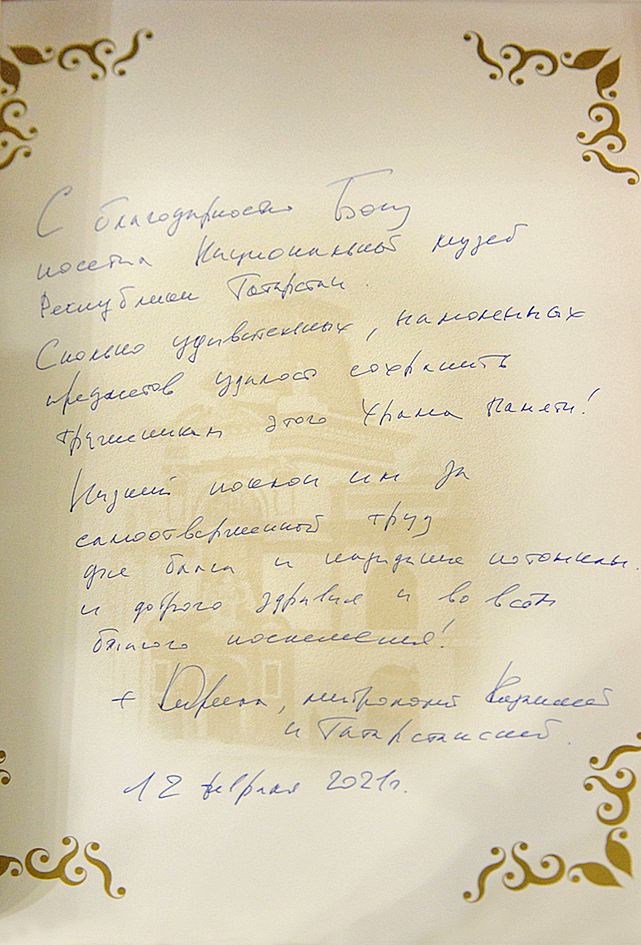 С благодарностью Богу
посетил Национальный музей
Республики Татарстан.
Сколько удивительных, намоленных
предметов удалось сохранить
труженикам этого Храма Памяти!
Низкий поклон им за
самоотверженный труд
для блага и назидания потомкам
и доброго здравия и во всем
благого поспешения!
+ Кирилл, митрополит Казанский
и Татарстанский.
12 февраля 2021г.